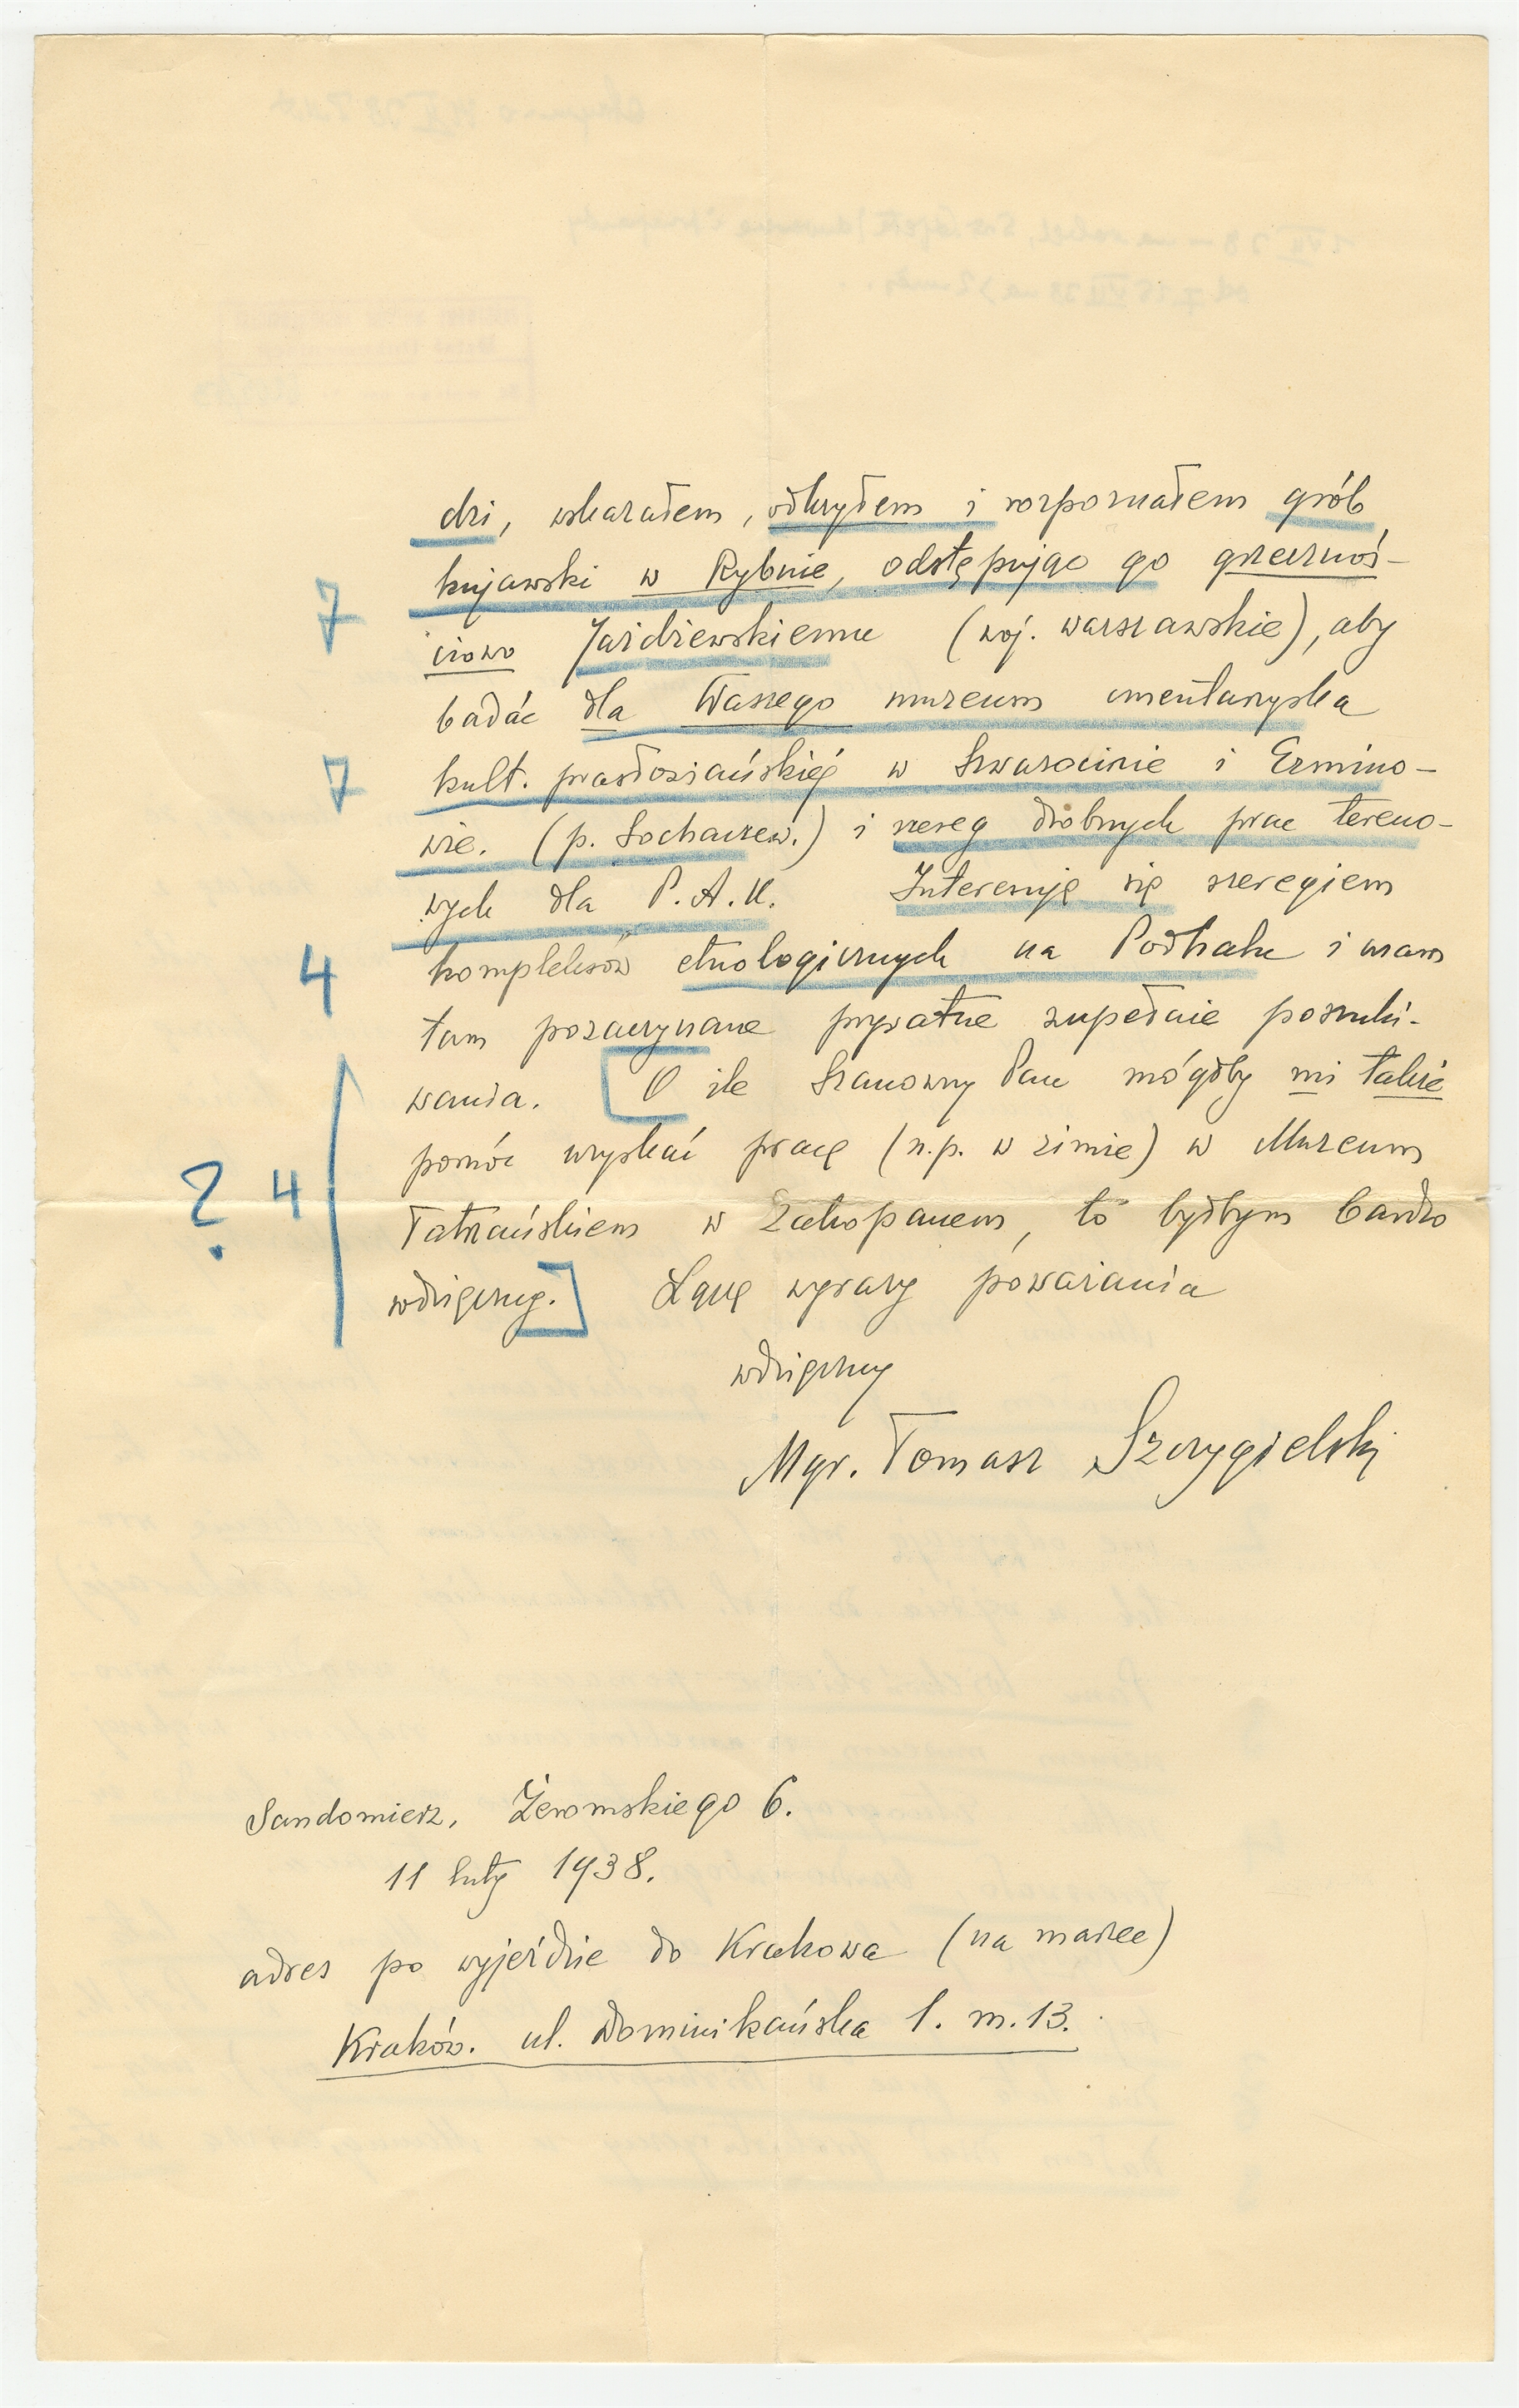 dzi, wskazałem, odkryłem i rozpoznałem grób
kujawski w Rybnie, odstępując go grzecznoś-
ciowo Jażdżewskiemu (woj. warszawskie), aby
badać dla Waszego muzeum cmentarzyska
7
kult. prasłowiańskiej w Szwarocinie i Ermino-
7
wie. (p. Sochaczew.) i szereg drobnych prac tereno-
wych dla P.A.U. Interesuję się szeregiem
kompleksów etnologicznych na Podhalu i mam
4
tam pozaczynane prywatne zupełnie poszuki-
wania. O ile Szanowny Pan mógłby mi także
pomóc uzyskać pracę (n.p. w zimie) w Muzeum
? 4
Tatrzańskiem w Zakopanem, to byłbym bardzo
wdzięczny. Łączę wyrazy poważania
wdzięczny
Mgr. Tomasz Szczygielski
Sandomierz, Żeromskiego 6.
11 luty 1938.
adres po wyjeździe do Krakowa (na marzec)
Kraków. ul. Dominikańska 1. m. 13.